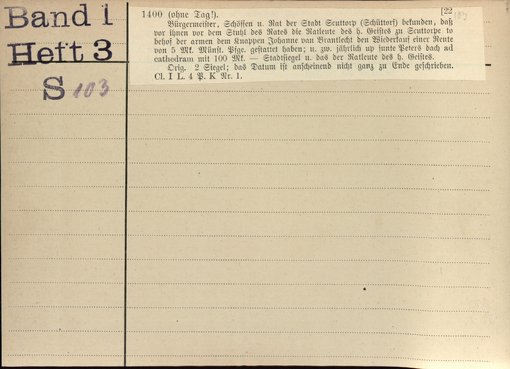 Band 1
Heft 3
S 103
1400 (ohne Tag!). [22
Bürgermeister, Schöffen u. Rat der Stadt Scuttorp (Schüttorf) bekunden, daß
vor ihnen vor dem Stuhl des Rates die Ratleute des h. Geistes zu Scuttorpe to
behof der armen dem Knappen Johanne van Brantlecht den Wiederkauf einer Rente
von 5 Mk. Münst. Pfge. gestattet haben; u. zw. jährlich up sunte Peters dach ad
cathedram mit 100 Mk. — Stadtsiegel u. das der Ratleute des h. Geistes.
Orig. 2 Siegel; das Datum ist anscheinend nicht ganz zu Ende geschrieben.
Cl. I L. 4 P. K Nr. 1.